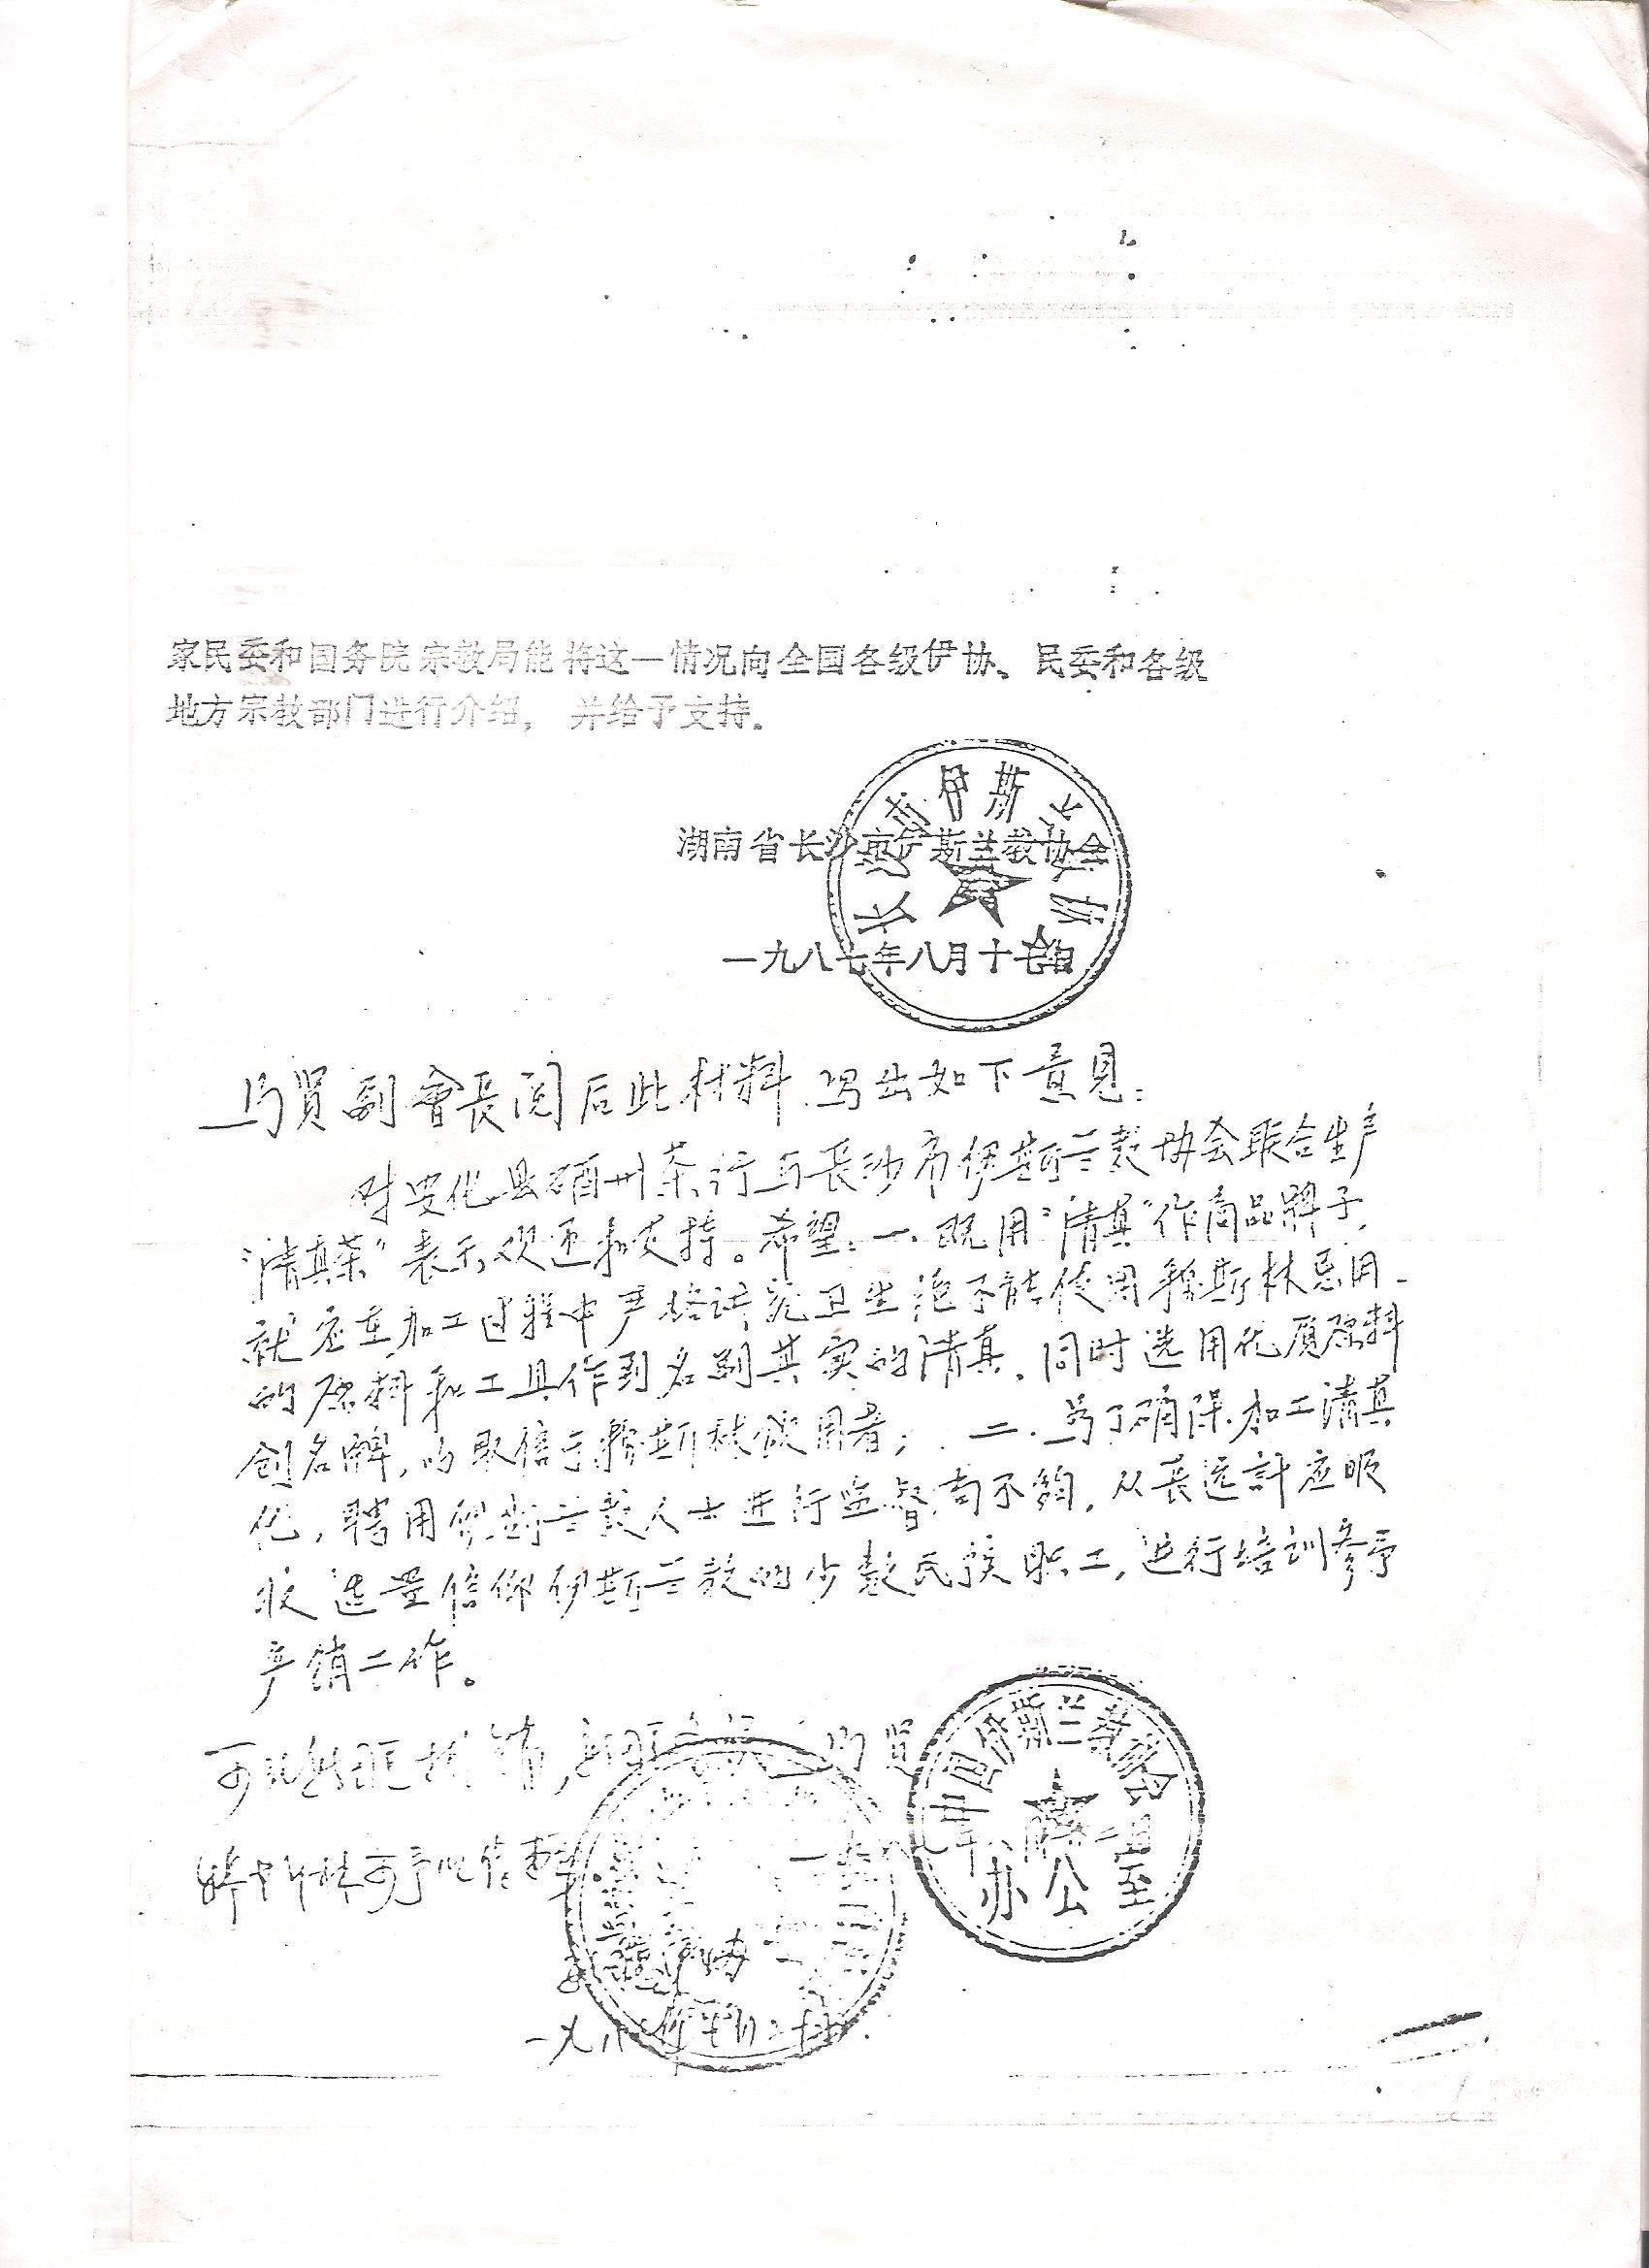 家民委和国务院宗教局能将这一情况向全国各级伊协、民委和各级
地方宗教部门进行介绍，并给予支持。
湖南省长沙市伊斯兰教协会
长沙市伊斯兰教协会
一九八七年八月十七日
马贤副會長阅后此材料.写出如下意见：
对安化县酉州茶行与长沙市伊斯兰教协会联合生产
“清真茶”表示欢迎和支持。希望：一.既用“清真”作商品牌子，
就应在加工过程中严格讲究卫生绝不能使用穆斯林忌用
的原料和工具作到名副其实的清真.同时选用优质原料
创名牌，以取信于穆斯林饮用者；二.为了确保加工清真
化，聘用伊斯兰教人士进行监督尚不够，从長远計应吸
收选置信仰伊斯兰教的少数民族职工，进行培训参予
产销工作。
马贤
中国伊斯兰教协会
办公室